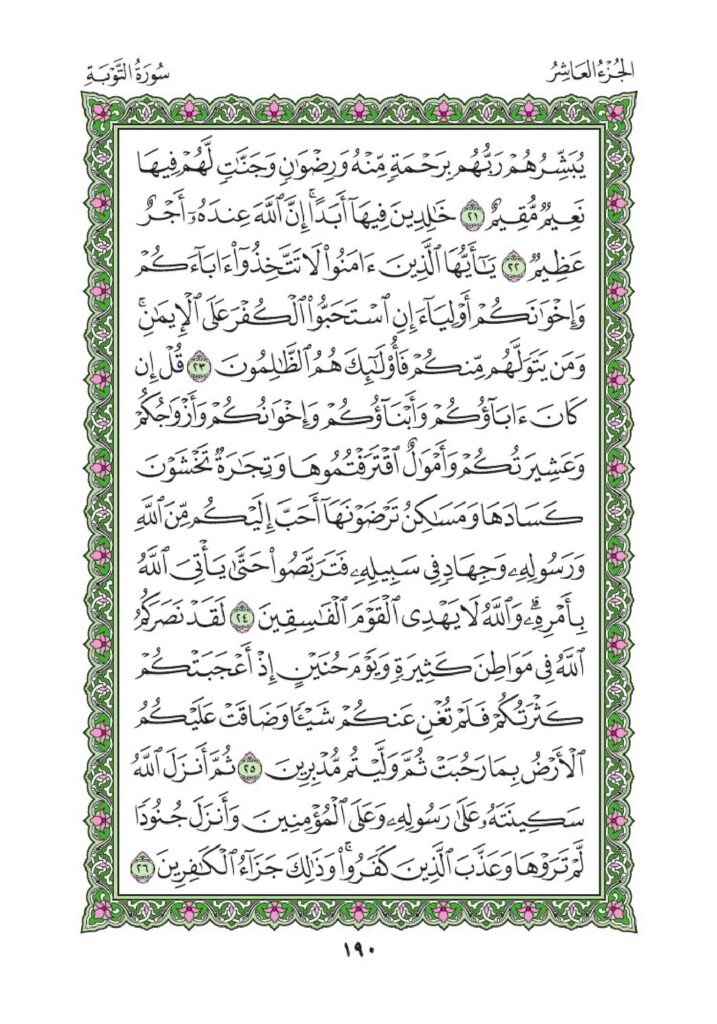 الجُزْءُ العَاشِرُ
سُورَةُ التَّوْبَةِ
يُبَشِّرُهُمْ رَبُّهُم بِرَحْمَةٍ مِّنْهُ وَرِضْوَانٍ وَجَنَّاتٍ لَّهُمْ فِيهَا
نَعِيمٌ مُّقِيمٌ ٢١ خَالِدِينَ فِيهَآ أَبَدًاۚ إِنَّ ٱللَّهَ عِندَهُۥٓ أَجْرٌ
عَظِيمٌ ٢٢ يَـٰٓأَيُّهَا ٱلَّذِينَ ءَامَنُوا۟ لَا تَتَّخِذُوٓا۟ ءَابَآءَكُمْ
وَإِخْوَٰنَكُمْ أَوْلِيَآءَ إِنِ ٱسْتَحَبُّوا۟ ٱلْكُفْرَ عَلَى ٱلْإِيمَـٰنِۚ
وَمَن يَتَوَلَّهُم مِّنكُمْ فَأُو۟لَـٰٓئِكَ هُمُ ٱلظَّـٰلِمُونَ ٢٣ قُلْ إِن
كَانَ ءَابَآؤُكُمْ وَأَبْنَآؤُكُمْ وَإِخْوَٰنُكُمْ وَأَزْوَٰجُكُمْ
وَعَشِيرَتُكُمْ وَأَمْوَٰلٌ ٱقْتَرَفْتُمُوهَا وَتِجَـٰرَةٌ تَخْشَوْنَ
كَسَادَهَا وَمَسَـٰكِنُ تَرْضَوْنَهَآ أَحَبَّ إِلَيْكُم مِّنَ ٱللَّهِ
وَرَسُولِهِۦ وَجِهَادٍ فِى سَبِيلِهِۦ فَتَرَبَّصُوا۟ حَتَّىٰ يَأْتِىَ ٱللَّهُ
بِأَمْرِهِۦۗ وَٱللَّهُ لَا يَهْدِى ٱلْقَوْمَ ٱلْفَـٰسِقِينَ ٢٤ لَقَدْ نَصَرَكُمُ
ٱللَّهُ فِى مَوَاطِنَ كَثِيرَةٍ وَيَوْمَ حُنَيْنٍ إِذْ أَعْجَبَتْكُمْ
كَثْرَتُكُمْ فَلَمْ تُغْنِ عَنكُمْ شَيْـًٔا وَضَاقَتْ عَلَيْكُمُ
ٱلْأَرْضُ بِمَا رَحُبَتْ ثُمَّ وَلَّيْتُم مُّدْبِرِينَ ٢٥ ثُمَّ أَنزَلَ ٱللَّهُ
سَكِينَتَهُۥ عَلَىٰ رَسُولِهِۦ وَعَلَى ٱلْمُؤْمِنِينَ وَأَنزَلَ جُنُودًا
لَّمْ تَرَوْهَا وَعَذَّبَ ٱلَّذِينَ كَفَرُوا۟ۚ وَذَٰلِكَ جَزَآءُ ٱلْكَـٰفِرِينَ ٢٦
١٩٠